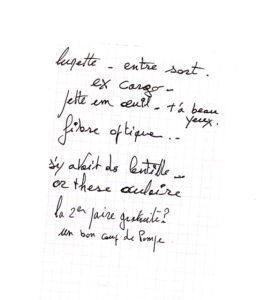 lunette - entre sort.
ex cargo -
jette un œuil - t'à beau
yeux.
fibre optique ...
s'y avait do lentille ...
or these oculaire
la 2em paire gratuite?
un bon coup de Pompe